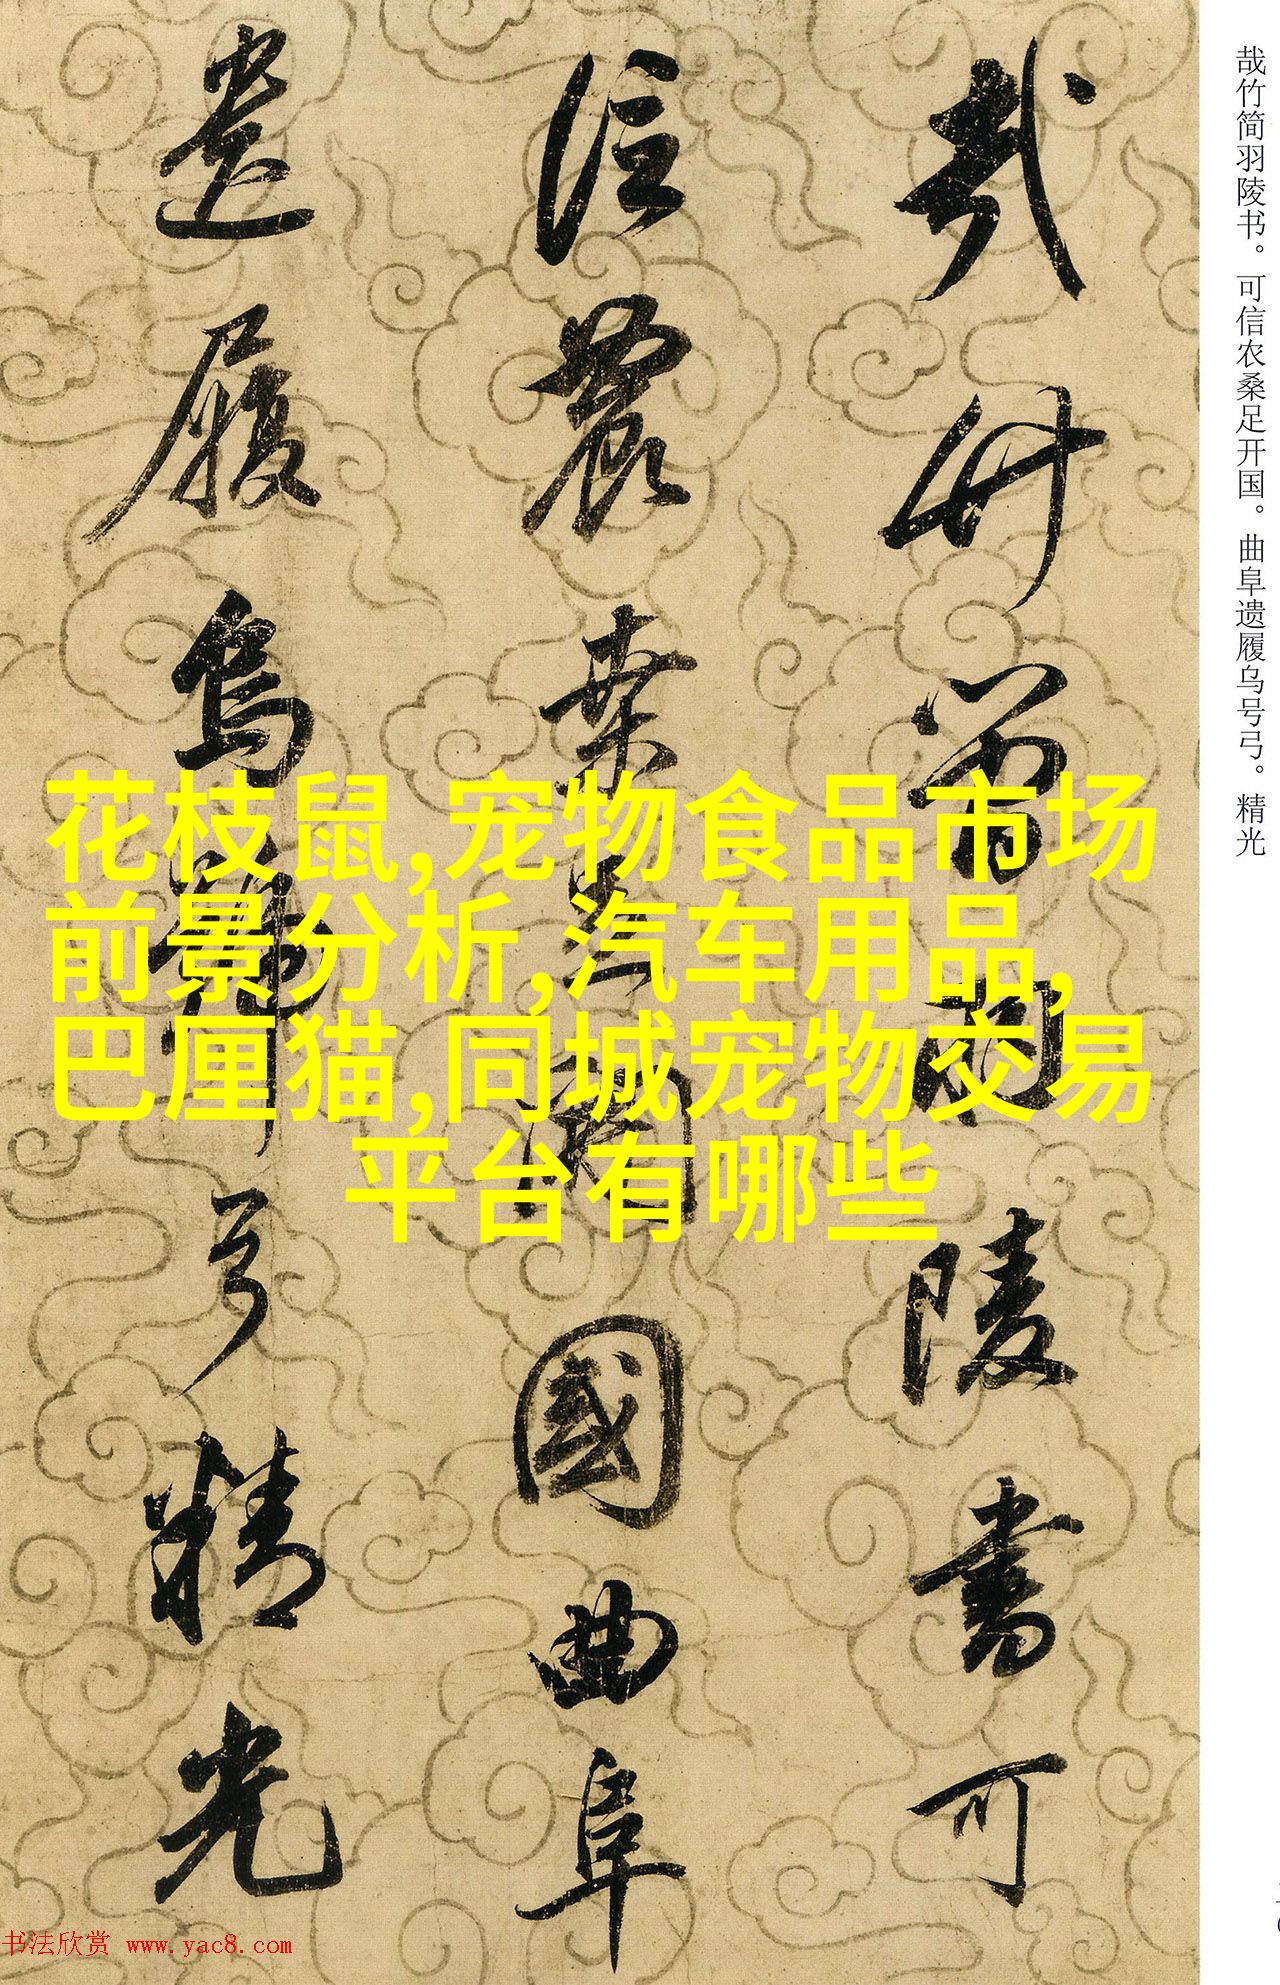 哉竹简羽陵书。可信农桑足开国。曲阜遗履乌号弓。精光
哉竹簡羽陵書可
信農桑足開國曲阜
遺履烏號弓精光
花枝鼠,宠物食品市场
前景分析,汽车用品,
巴厘猫,同城宠物交易
平台有哪些
书法欣赏 www.yac8.com